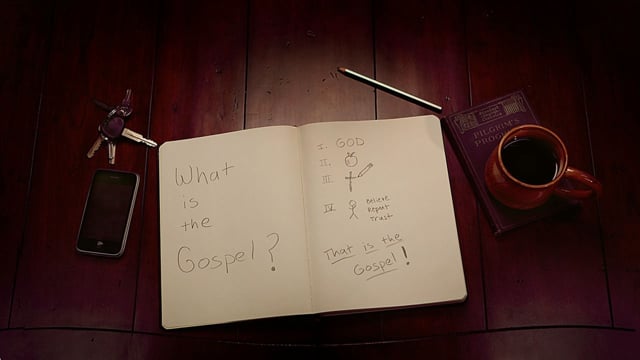 What
is
the
Gospel?
I. GOD
II.
III.
IV. Believe
Repent
Trust
That is the
Gospel!
PILGRIM'S
PROGRESS